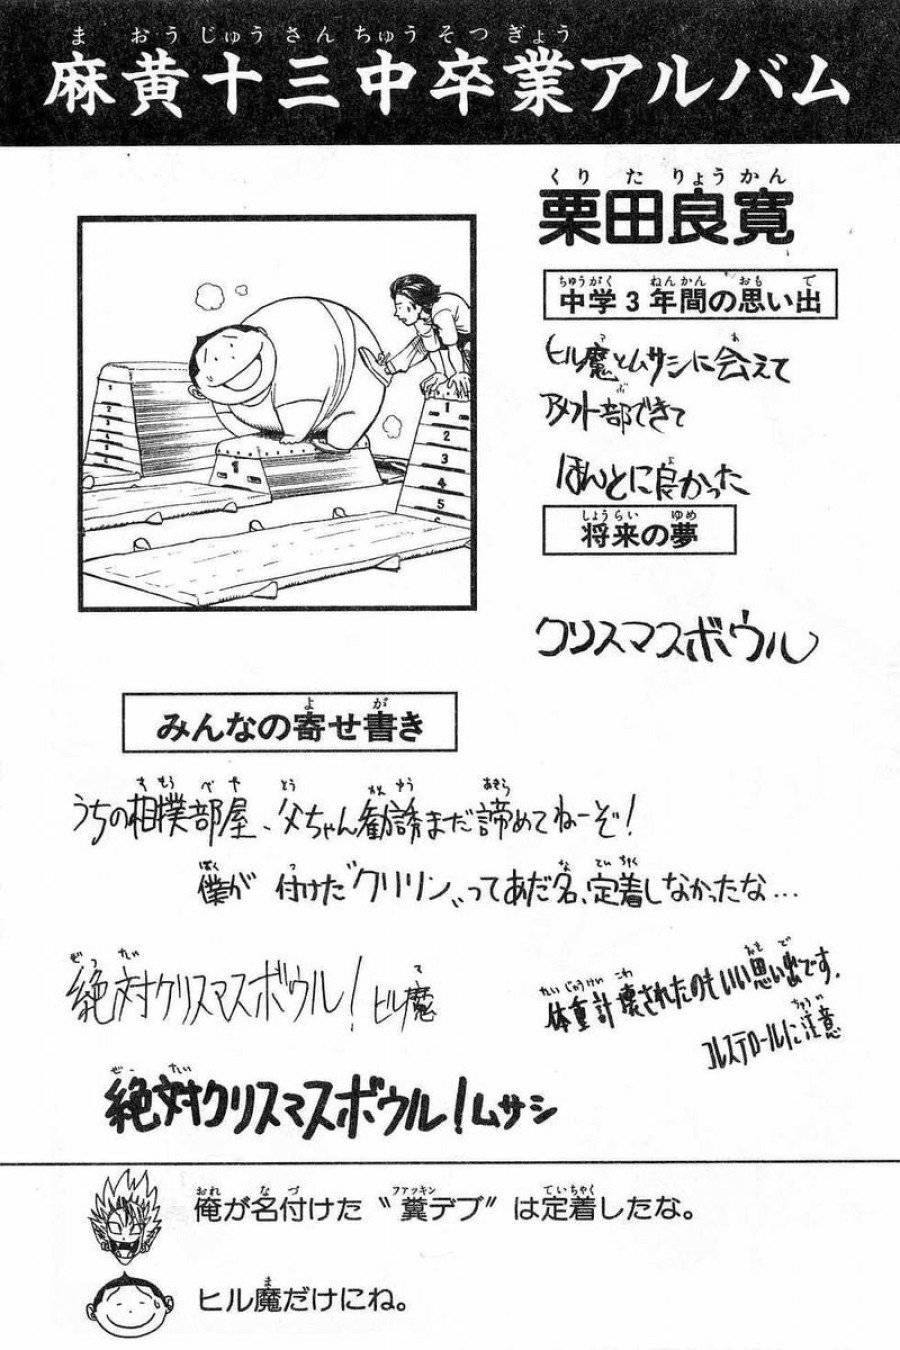 麻黄十三中卒業アルバム
栗田良寛
中学3年間の思い出
ヒル魔とムサシに会えて
アメフト部できて
ほんとに良かった
将来の夢
クリスマスボウル
みんなの寄せ書き
うちの相撲部屋、父ちゃん勧誘まだ諦めてねーぞ！
僕が付けた“クリリン”ってあだ名、定着しなかったな…
絶対クリスマスボウル！ヒル魔
体重計壊されたのもいい思い出です。
コレステロールに注意
絶対クリスマスボウル！ムサシ
俺が名付けた“糞デブ”は定着したな。
ヒル魔だけにね。